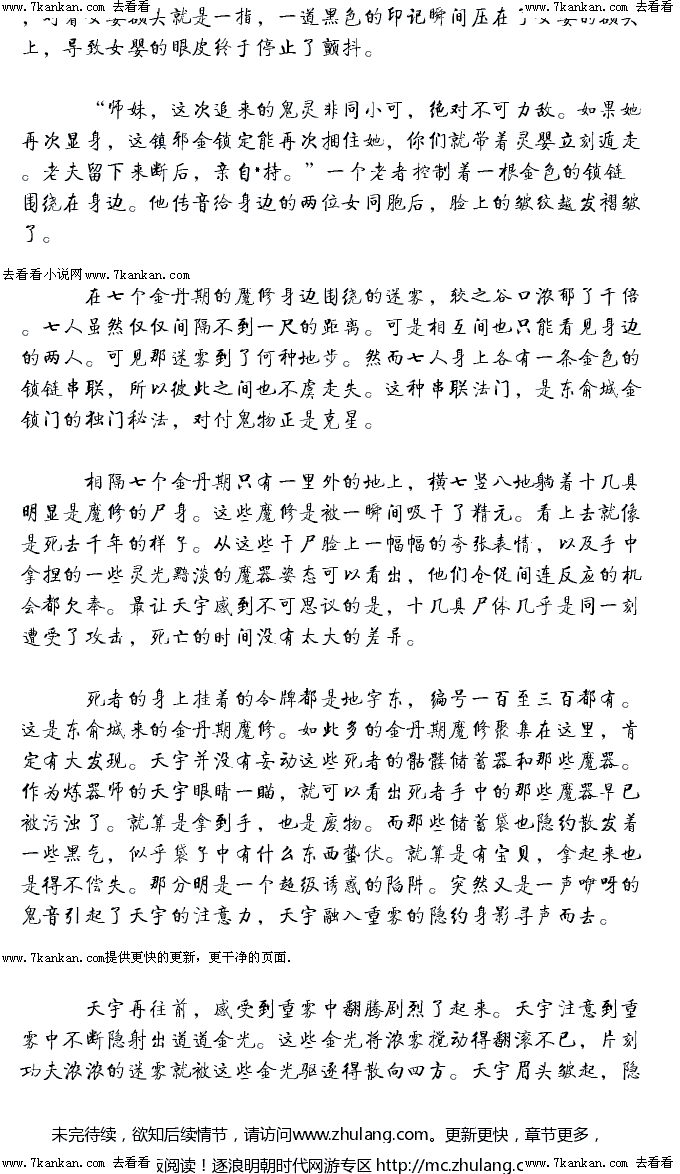 www.7kankan.com 去看看 www.7kankan.com 去看看 www.7kankan.com 去看看 www.7kankan.com 去看看
，对着女婴额头就是一指，一道黑色的印记瞬间压在了女婴的额头
上，导致女婴的眼皮终于停止了颤抖。
“师妹，这次追来的鬼灵非同小可，绝对不可力敌。如果她
再次显身，这镇邪金锁定能再次捆住她，你们就带着灵婴立刻遁走
。老夫留下来断后，亲自*持。”一个老者控制着一根金色的锁链
围绕在身边。他传音给身边的两位女同胞后，脸上的皱纹越发褶皱
了。
去看看小说网www.7kankan.com
在七个金丹期的魔修身边围绕的迷雾，较之谷口浓郁了千倍
。七人虽然仅仅间隔不到一尺的距离。可是相互间也只能看见身边
的两人。可见那迷雾到了何种地步。然而七人身上各有一条金色的
锁链串联，所以彼此之间也不虞走失。这种串联法门，是东俞城金
锁门的独门秘法，对付鬼物正是克星。
相隔七个金丹期只有一里外的地上，横七竖八地躺着十几具
明显是魔修的尸身。这些魔修是被一瞬间吸干了精元。看上去就像
是死去千年的样子。从这些干尸脸上一幅幅的夸张表情，以及手中
拿捏的一些灵光黯淡的魔器姿态可以看出，他们仓促间连反应的机
会都欠奉。最让天宇感到不可思议的是，十几具尸体几乎是同一刻
遭受了攻击，死亡的时间没有太大的差异。
死者的身上挂着的令牌都是地字东，编号一百至三百都有。
这是东俞城来的金丹期魔修。如此多的金丹期魔修聚集在这里，肯
定有大发现。天宇并没有妄动这些死者的骷髅储蓄器和那些魔器。
作为炼器师的天宇眼睛一瞄，就可以看出死者手中的那些魔器早已
被污浊了。就算是拿到手，也是废物。而那些储蓄袋也隐约散发着
一些黑气，似乎袋子中有什么东西蛰伏。就算是有宝贝，拿起来也
是得不偿失。那分明是一个超级诱惑的陷阱。突然又是一声咿呀的
鬼音引起了天宇的注意力，天宇融入重雾的隐约身影寻声而去。
www.7kankan.com提供更快的更新，更干净的页面.
天宇再往前，感受到重雾中翻腾剧烈了起来。天宇注意到重
雾中不断隐射出道道金光。这些金光将浓雾搅动得翻滚不已，片刻
功夫浓浓的迷雾就被这些金光驱逐得散向四方。天宇眉头皱起，隐
未完待续，欲知后续情节，请访问www.zhulang.com。更新更快，章节更多，
www.7kankan.com 去看看 阅读！逐浪明朝时代网游专区 http://mc.zhulang.co www.7kankan.com 去看看